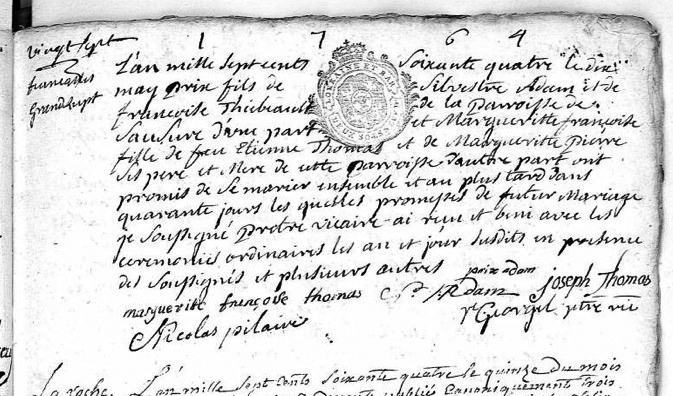 1 7 6 4
vingt sept
françoises
grandrupt
L'an mille sept cents soixante quatre le dix
may prix fils de Silvestre Adam et de
françoise Thiebeault de la parroisse de
Saulsure d'une part et Margueritte françoise
fille de feu Etienne Thomas et de Margueritte pierre
ses pere et Mere de cette parroisse d'autre part ont
promis de se marier ensemble et au plus tard dans
quarante jours les quelles promesses de futur Mariage
je soussigné pretre vicaire ai recu et beni avec les
ceremonies ordinaires les an et jour susdits en presence
des soussignés et plusieurs autres
prix adam joseph Thomas
margueritte françoise thomas Adam
Nicolas pilaire ptre vic
La roche L'an mille sept cents soixante quatre le quinze du mois
publiés canoniquement trois